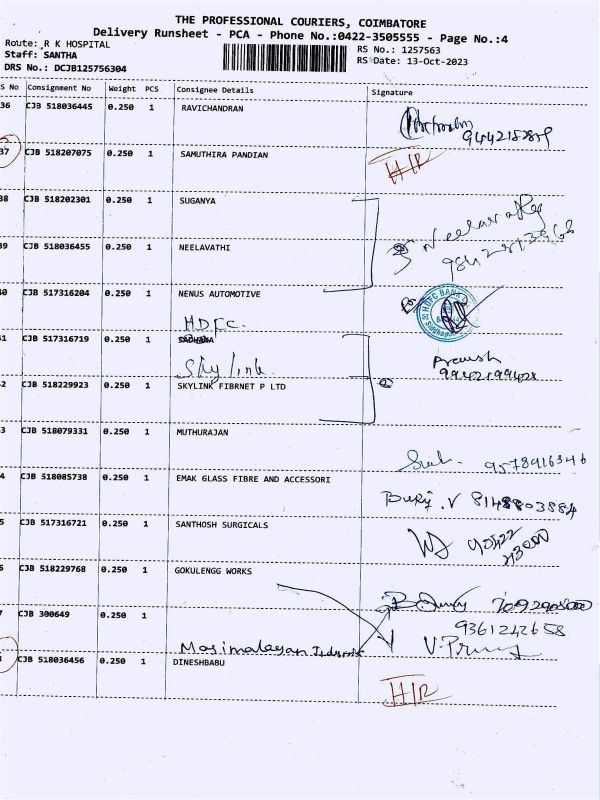 THE PROFESSIONAL COURIERS, COIMBATORE
Delivery Runsheet - PCA - Phone No.:0422-3505555 - Page No.:4
Route: R K HOSPITAL
Staff: SANTHA
DRS No.: DCJB125756304
RS No.: 1257563
RS Date: 13-Oct-2023
S No Consignment No Weight PCS Consignee Details Signature
36 CJB 518036445 0.250 1 RAVICHANDRAN
37 CJB 518207075 0.250 1 SAMUTHIRA PANDIAN
38 CJB 518202301 0.250 1 SUGANYA
39 CJB 518036455 0.250 1 NEELAVATHI
40 CJB 517316204 0.250 1 NENUS AUTOMOTIVE
HDFC BANK
H.D.F.C.
41 CJB 517316719 0.250 1 SADHANA
Sky link
42 CJB 518229923 0.250 1 SKYLINK FIBRNET P LTD
3 CJB 518079331 0.250 1 MUTHURAJAN
4 CJB 518085738 0.250 1 EMAK GLASS FIBRE AND ACCESSORI
8148803884
5 CJB 517316721 0.250 1 SANTHOSH SURGICALS
6 CJB 518229768 0.250 1 GOKULENGG WORKS
7 CJB 300649 0.250 1
9361242658
CJB 518036456 0.250 1 DINESHBABU